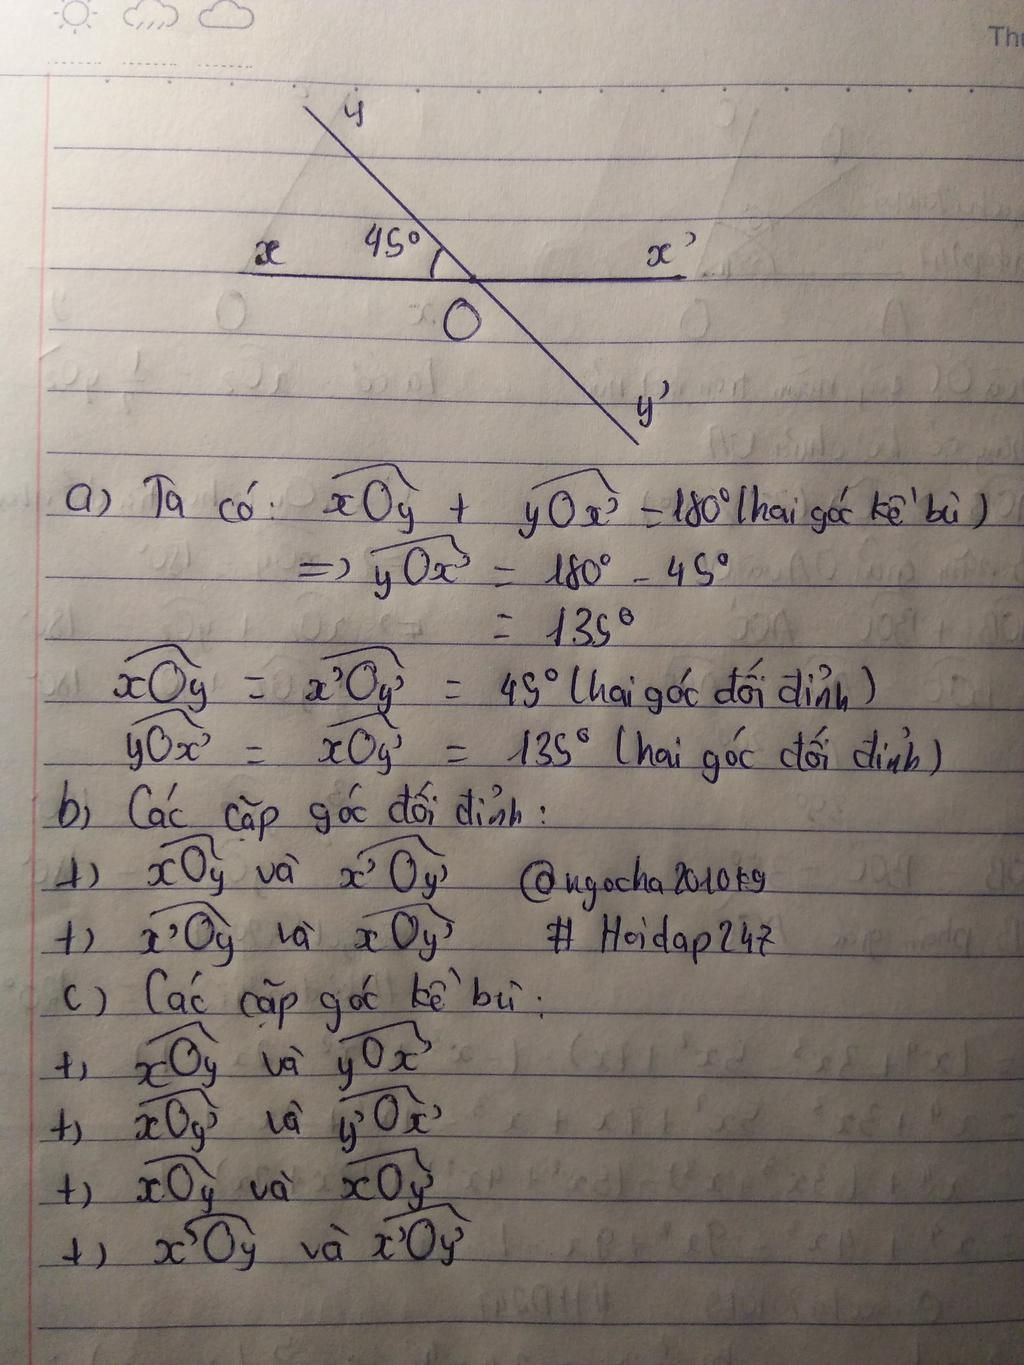 Thứ
y
x 45° x'
O
y'
a) Ta có: xOy + yOx' = 180° (hai góc kề bù)
=> yOx' = 180° - 45°
= 135°
xOy = x'Oy' = 45° (hai góc đối đỉnh)
yOx' = xOy' = 135° (hai góc đối đỉnh)
b) Các cặp góc đối đỉnh:
+) xOy và x'Oy' @ngocha2010k9
+) x'Oy và xOy' # Hoidap247
c) Các cặp góc kề bù:
+) xOy và yOx'
+) xOy' và y'Ox'
+) xOy và xOy'
+) x'Oy và x'Oy'